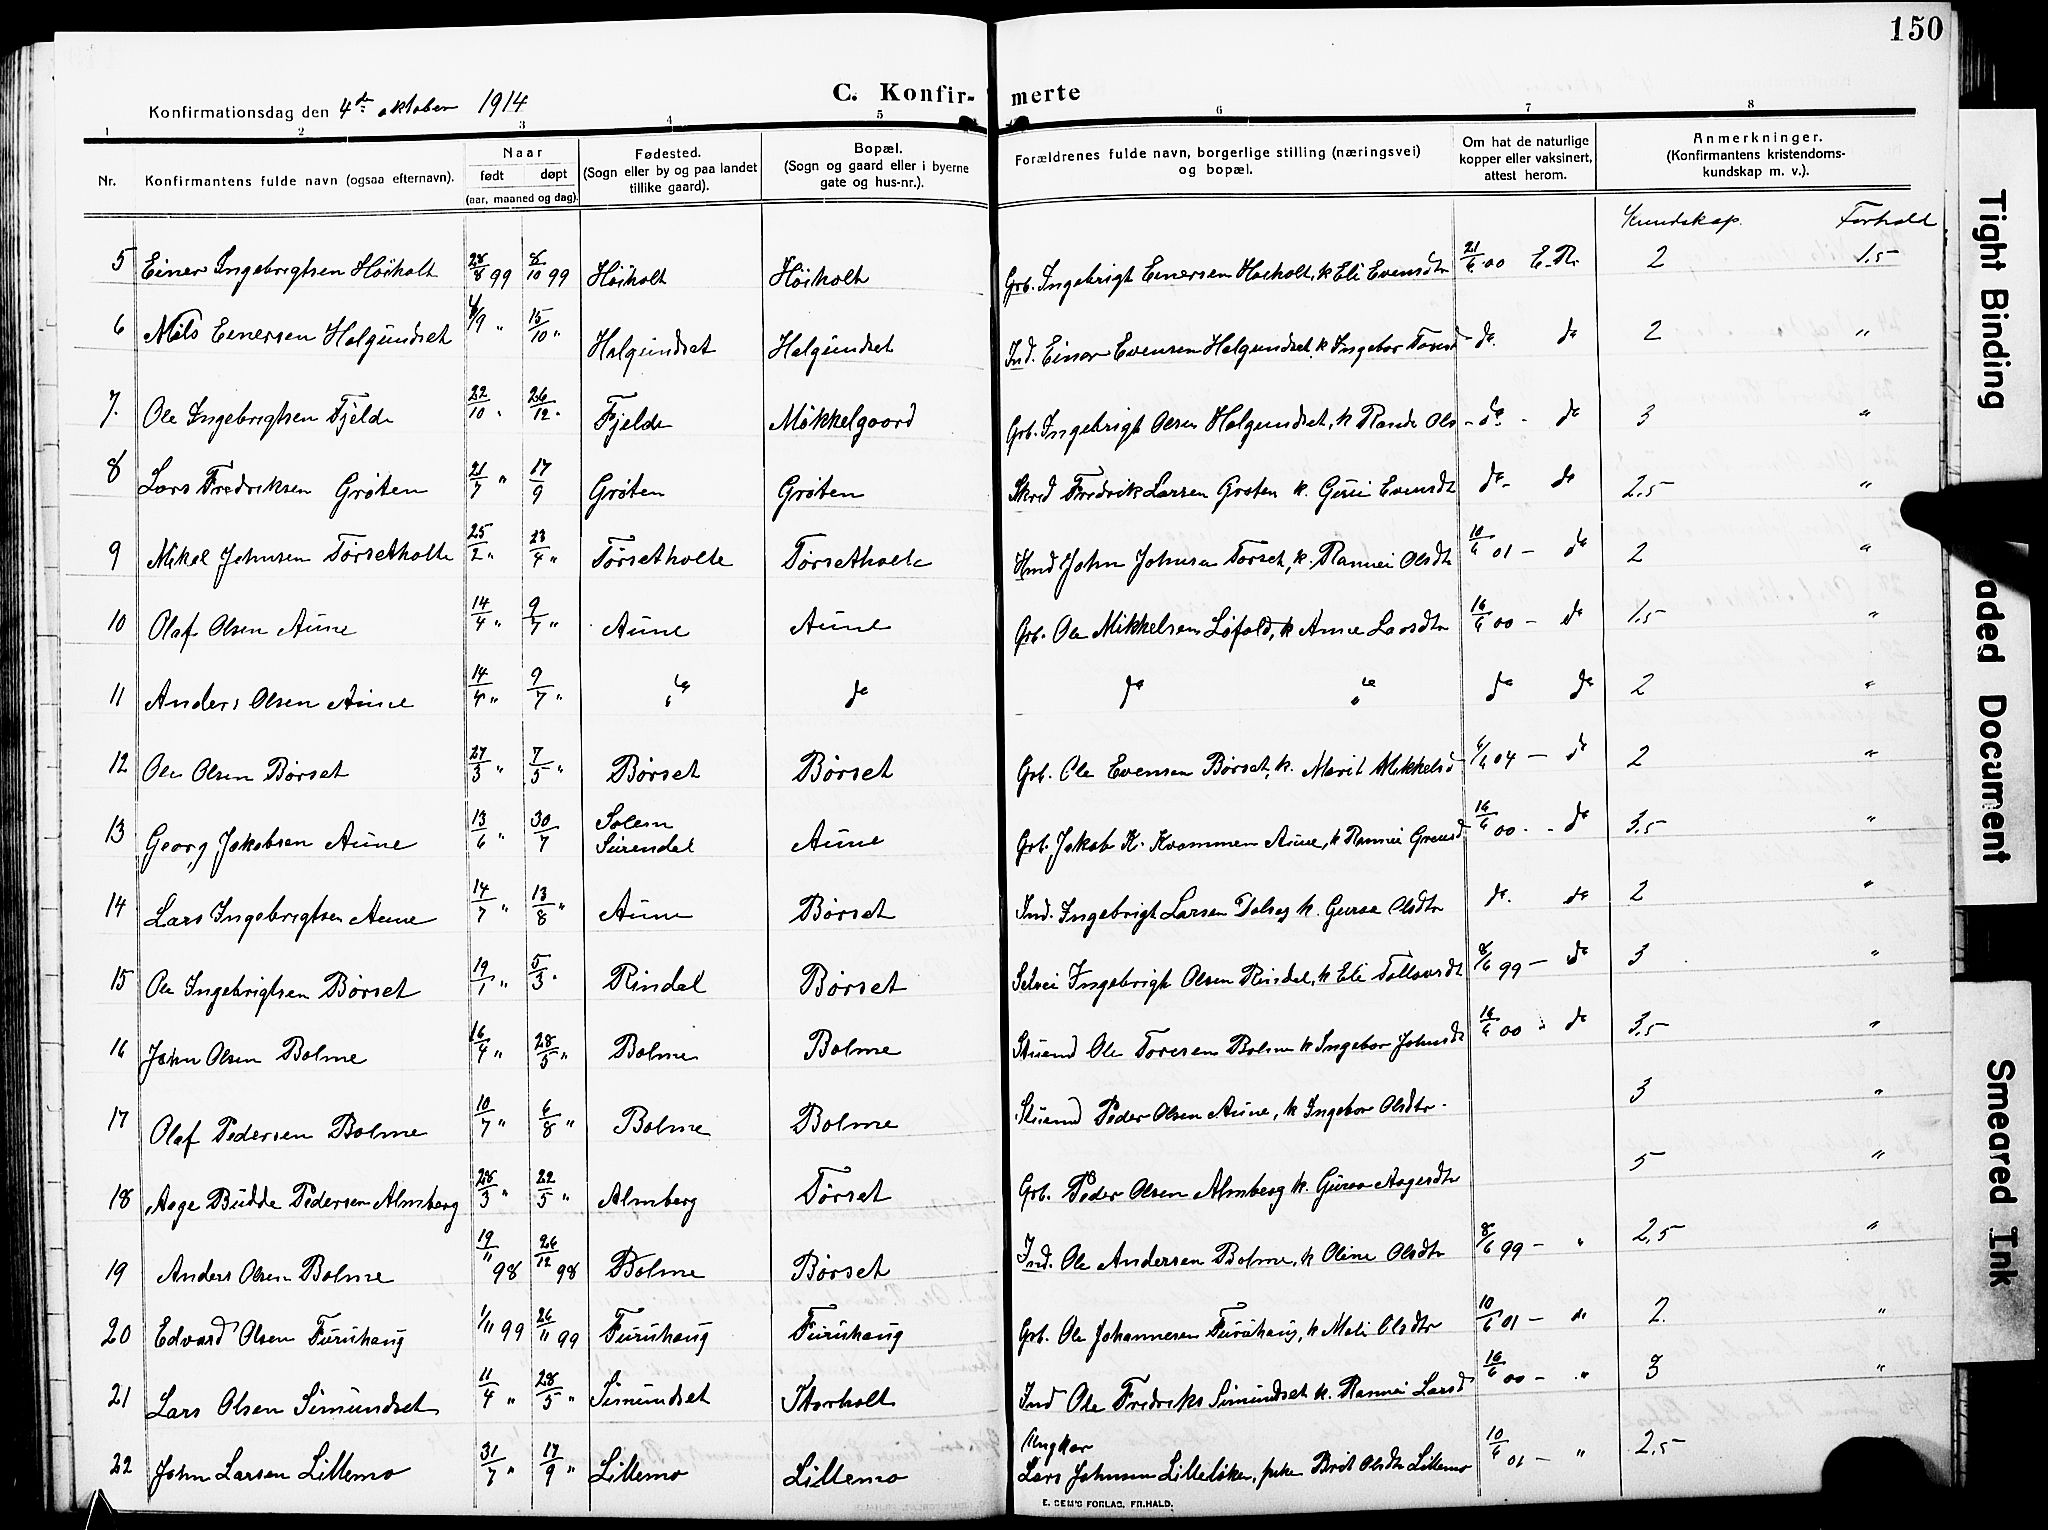 150
C. Konfir- merte
Konfirmationsdag den 4de oktober 1914
1 2 3 4 5 6 7 8
Nr. Konfirmantens fulde navn (ogsaa efternavn). Naar født døpt (aar, maaned og dag). Fødested. (Sogn eller by og paa landet tillike gaard). Bopæl. (Sogn og gaard eller i byerne gate og hus-nr.). Forældrenes fulde navn, borgerlige stilling (næringsvei) og bopæl. Om hat de naturlige kopper eller vaksinert, attest herom. Anmerkninger. (Konfirmantens kristendoms- kundskap m. v.).
Kundskap. Forhold
5 Einer Ingebrigtsen Höiholt 28/8 99 8/10 99 Höiholt Höiholt Grb. Ingebrigt Einersen Høiholt, k Eli Evensdtr 21/6 00 E.R. 2 1.5
6 Nils Einersen Halgundset 4/9 " 15/10 " Halgundset Halgundset Ind. Einar Evensen Halgundset, k Ingebor - do. do 2 "
7. Ole Ingebrigtsen Fjelde 22/10 " 26/12 " Fjelde Mikkelgaard Grb. Ingebrigt Olsen Halgundset, k Rande Ols - do - do 3 "
8 Lars Fredriksen Grøten 21/7 " 17/9 Grøten Grøten Skred Fredrik Larsen Grøten k. Guri Evensdtr do - do 2,5 "
9 Mikal Johnsen Tørsetholte 25/2 " 23/4 " Tørsetholte Tørsetholte John Johnsen Tørset, k. Rannei Olsdtr 10/6 01 - do 2 "
10 Olaf Olsen Aune 14/4 " 9/7 " Aune Aune Grb. Ole Mikkelsen Løfald, k Anne Larsdtr 16/6 00 - do 1,5 "
11 Anders Olsen Aune 14/4 " 9/7 " do do do do do do 2 "
12 Ole Olsen Børset 27/3 " 7/5 " Børset Børset Grb. Ole Evensen Børset, k. Marit Mikkelsd 04 - do 2 "
13 Georg Jakobsen Aune 13/6 " 30/7 Solem Surendal Aune Grb. Jakob K. Kvammen Aune, k Rannei 16/6 00 - do 3.5 "
14 Lars Ingebrigtsen Aune 14/7 " 13/8 " Aune Børset Ind. Ingebrigt Larsen k. Guroe Olsdtr do. do 2 "
15 Ole Ingebrigtsen Børset 19/1 " 5/3 " Rindal Børset Selvei Ingebrigt Olsen Rindal, k Eli 8/6 99 - do 3 "
16 John Olsen Bolme 16/4 " 28/5 " Bolme Bolme Stuemd Ole Toresen Bolme k Ingebor Johnsdt 16/6 00 - do 3,5 "
17 Olaf Pedersen Bolme 10/7 " 6/8 " Bolme Bolme Stuemd Peder Olsen Aune, k Ingebor Olsdtr. 3 "
18 Aage Budde Pedersen Almberg 28/3 " 22/5 " Almberg Tørset Grb. Peder Olsen Almberg k. Guroe Aagesdtr 5 "
19 Anders Olsen Bolme 19/11 98 26/12 98 Bolme Børset Ind. Ole Andersen Bolme, k Oline Olsdtr 8/6 99 - " 2,5 "
20 Edvard Olsen Furuhaug 1/11 99 26/11 99 Furuhaug Furuhaug Grb. Ole Johannesen Furuhaug, k Mali Olsdtr 10/6 01 - " 2. "
21 Lars Olsen Simundset 11/4 " 28/5 " Simundset Storholt Ind Ole Fredriks Simundset k. Rannei Larsd 16/6 00 - " 3 "
22 John Larsen Lillemo 31/7 " 17/9 " Lillemo Lillemo Ungkar Lars Johnsen Lilleløken, pike Brit Olsdtr Lillemo 10/6 01 - " 2,5
E. SEM'S FORLAG, FR.HALD.
Tight Binding
aded Document
Smeared Ink